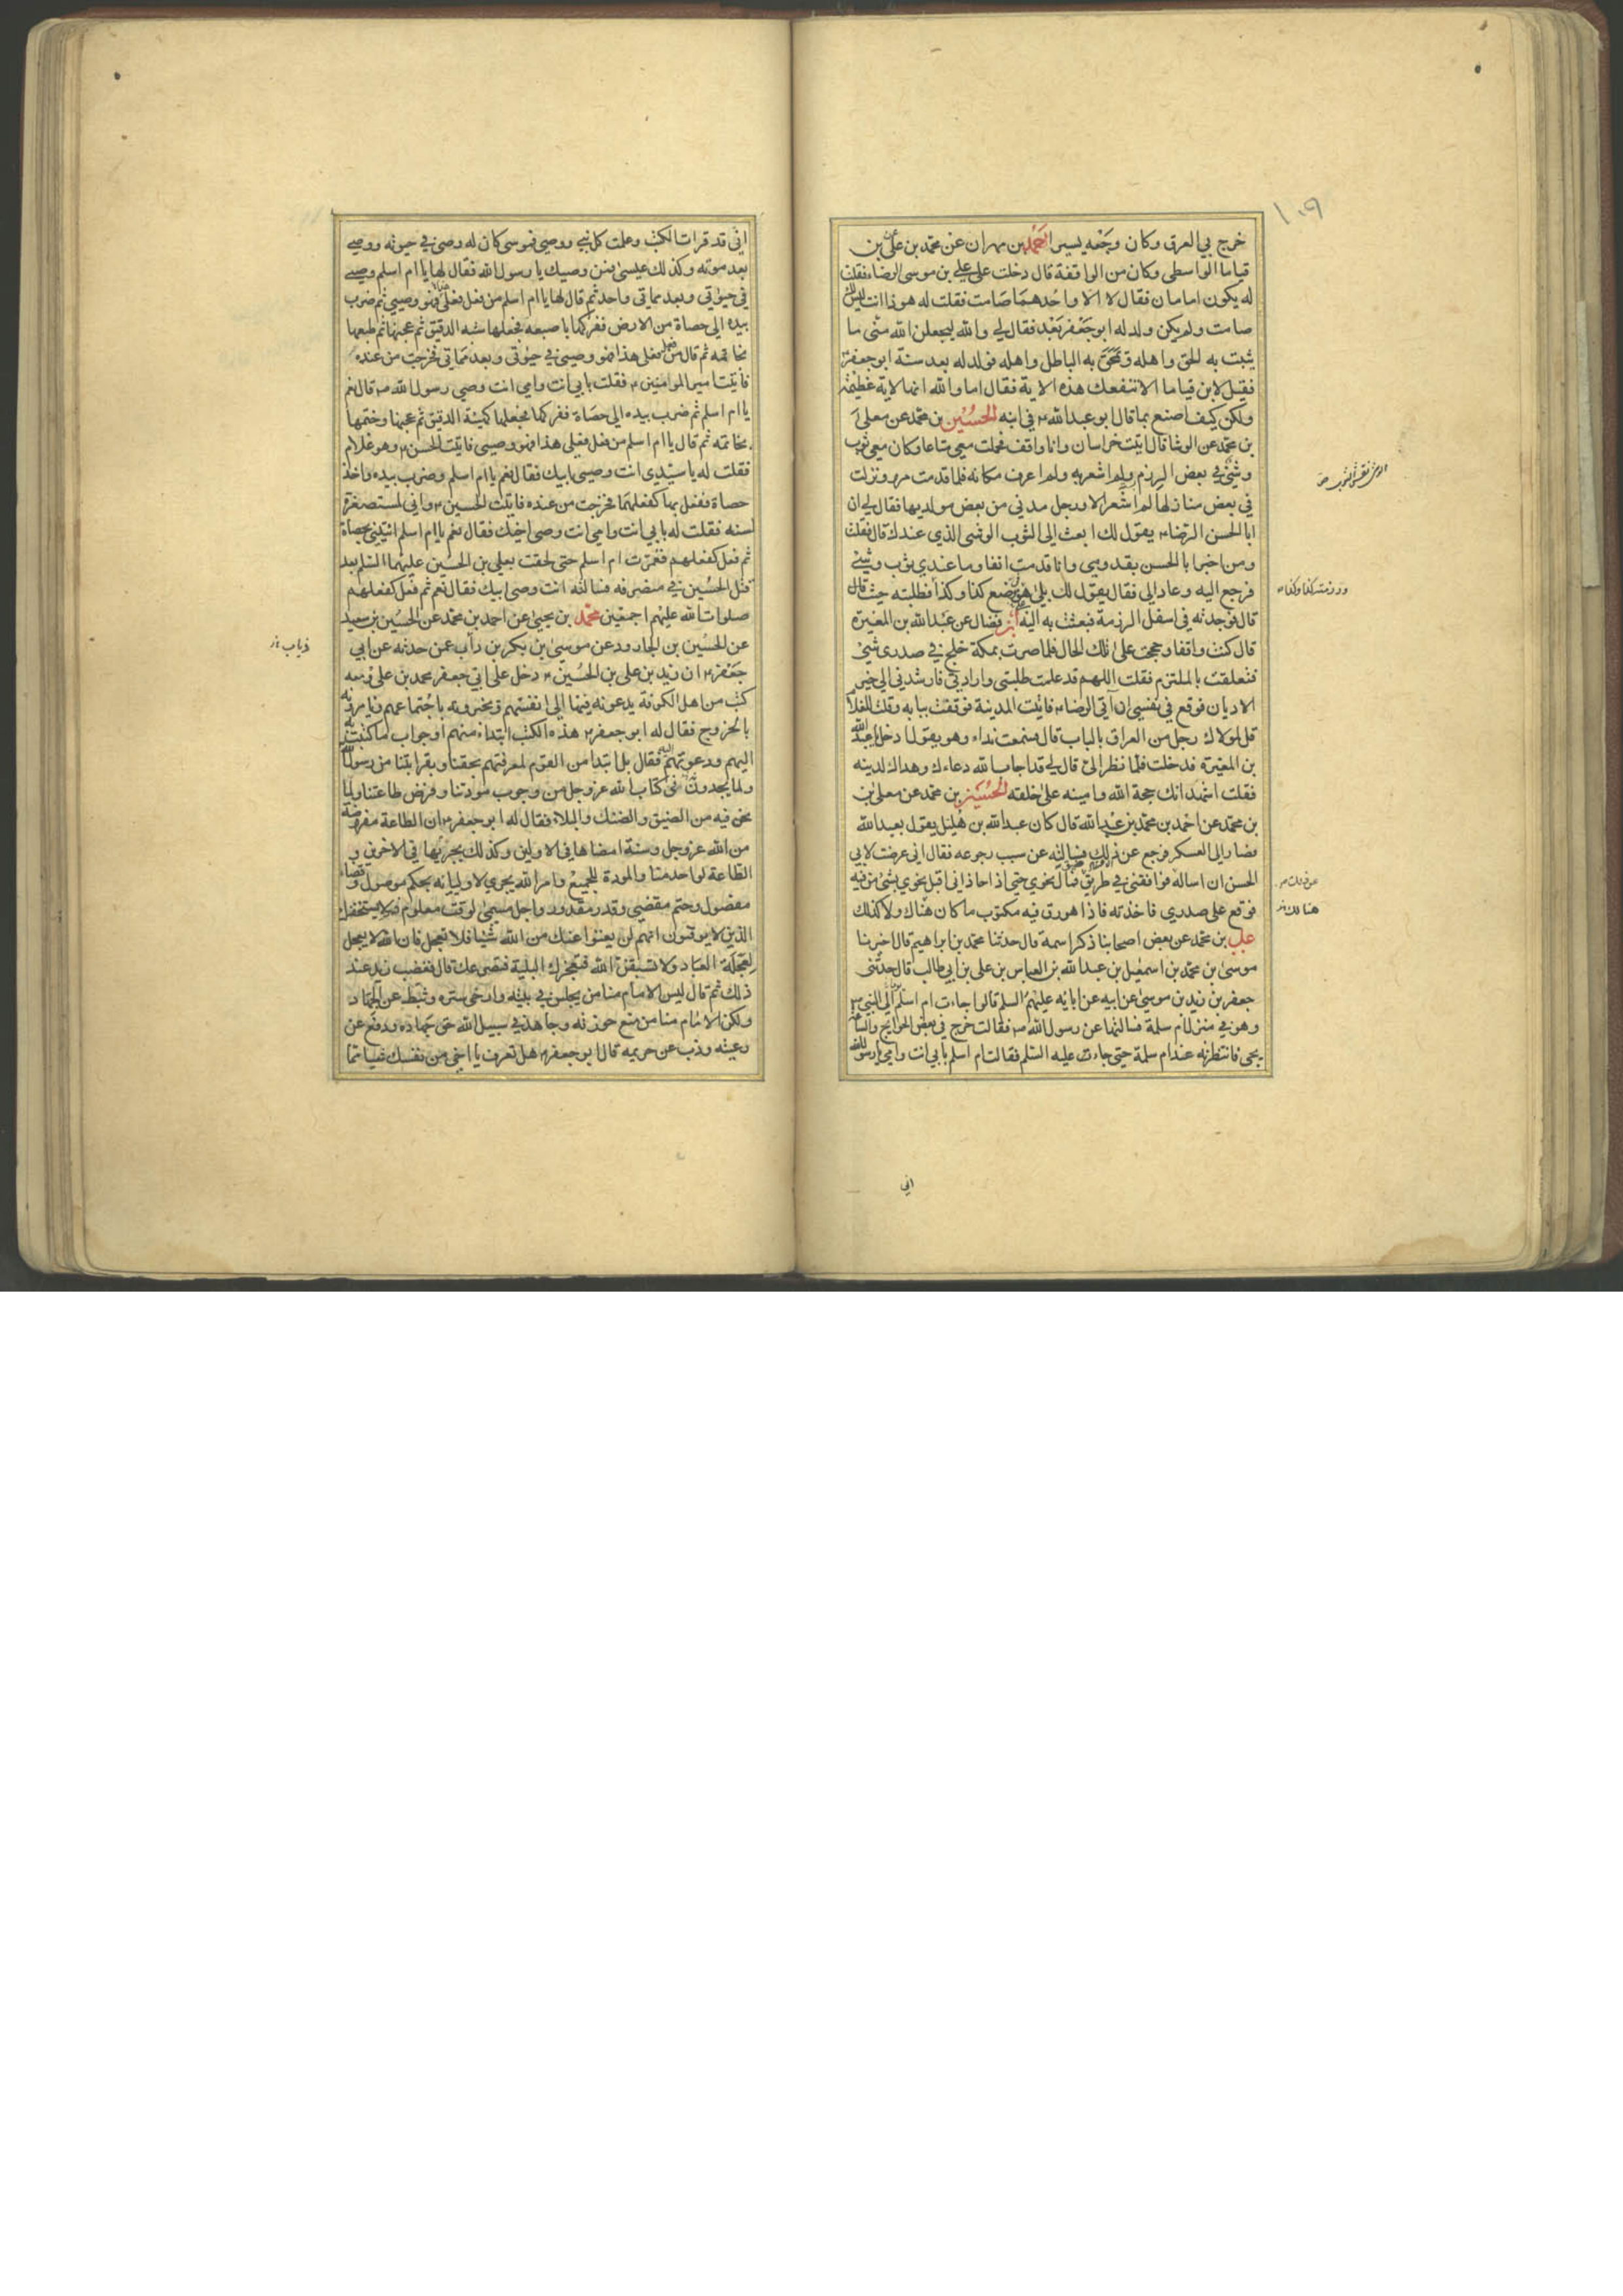 ١٠٩
خرج بي العرق وكان وجعه يسيرا احمد بن مهران عن محمد بن علي عن بن
قياما الواسطي وكان من الواقفة قال دخلت على علي بن موسى الرضاء فقلت
له يكون امامان فقال لا الا واحدهما صامت فقلت له هوذا انت ليس لك
صامت ولم يكن ولد له ابو جعفر بعد فقال لي والله ليجعلن الله منى ما
يثبت به الحق واهله ويمحق به الباطل واهله فولد له بعد سنة ابو جعفر
فقيل لابن قياما الا تنفعك هذه الاية فقال اما والله انها لاية عظيمة
ولكن كيف اصنع بما قال ابو عبد الله في ابنه الحسين بن محمد عن معلى
بن محمد عن الوشا قال اتيت خراسان وانا واقف فحملت معي متاعا وكان معي ثوب
وشي في بعض الرزم ولم اشعر به ولم اعرف مكانه فلما قدمت مرو ونزلت
في بعض منازلها لم اشعر الا ورجل مدني من بعض مولديها فقال لي ان
ابا الحسن الرضاء يقول لك ابعث الى الثوب الوشى الذي عندك قال فقلت
ومن اخبر ابا الحسن بقدومي وانا قدمت انفا وما عندي ثوب وشي
فرجع اليه وعاد الي فقال يقول لك بلى هو في موضع كذا وكذا فطلبته حيث قال
قال فوجدته في اسفل الرزمة فبعثت به اليه ابن فضال عن عبد الله بن المغيرة
قال كنت واقفا وحججت على تلك الحال فلما صرت بمكة خلج في صدري شئ
فتعلقت بالملتزم فقلت اللهم قد علمت طلبتي وارادتي فارشدني الى خير
الاديان فوقع في نفسي ان آتي الرضاء فاتيت المدينة فوقفت ببابه وقلت للغلام
قل لمولاك رجل من العراق بالباب قال فسمعت نداءه وهو يقول ادخل يا عبد الله
بن المغيرة فدخلت فلما نظر الي قال لي قد اجاب الله دعاءك وهداك لدينه
فقلت اشهد انك حجة الله وامينه على خلقه الحسين بن محمد عن معلى بن
بن محمد عن احمد بن محمد بن عبد الله قال كان عبد الله بن هليل يقول بعبد الله
فصار الى العسكر فرجع عن ذلك فسالته عن سبب رجوعه فقال اني عرضت لابي
الحسن ان اساله فوافقني في طريق ضيق فمال نحوي حتى اذا حاذاني اقبل نحوي بشئ من فيه
فوقع على صدري فاخذته فاذا هو رق فيه مكتوب ما كان هناك ولا كذلك
علي بن محمد عن بعض اصحابنا ذكر اسمه قال حدثنا محمد بن ابراهيم قال اخبرنا
موسى بن محمد بن اسمعيل بن عبد الله بن العباس بن على بن ابي طالب قال حدثنى
جعفر بن زيد بن موسى عن ابيه عن ابائه عليهم السلم قالوا جاءت ام اسلم الى النبي ص
وهو في منزل ام سلمة فسالتها عن رسول الله ص فقالت خرج في بعض الحوايج والساعة
يجى فانتظرته عند ام سلمة حتى جاء ت عليه السلم فقالت ام اسلم بابي انت وامي يا رسول الله
اني
هنالك
اني قد قرات الكتب وعلمت كل نبي ووصي فموسى كان له وصى في حيوته ووصي
بعد موته وكذلك عيسى فمن وصيك يا رسول الله فقال لها يا ام اسلم وصيي
في حيوتي وبعد مماتي واحد ثم قال لها يا ام اسلم من فعل فعلي هذا فهو وصيي ثم ضرب
بيده الى حصاة من الارض ففركها باصبعه فجعلها شبه الدقيق ثم عجنها ثم طبعها
بخاتمه ثم قال من فعل فعلي هذا فهو وصيي في حيوتي وبعد مماتي فخرجت من عنده
فاتيت امير المومنين فقلت بابي انت وامي انت وصي رسول الله ص قال نعم
يا ام اسلم ثم ضرب بيده الى حصاة ففركها فجعلها كهيئة الدقيق ثم عجنها وختمها
بخاتمه ثم قال يا ام اسلم من فعل فعلي هذا فهو وصيي فاتيت الحسن وهو غلام
فقلت له يا سيدي انت وصي ابيك فقال نعم يا ام اسلم وضرب بيده واخذ
حصاة ففعل بها كفعلهما فخرجت من عنده فاتيت الحسين واني لمستصغرة
لسنه فقلت له بابي انت وامي انت وصي اخيك فقال نعم يا ام اسلم ائتيني بحصاة
ثم فعل كفعلهم فعمرت ام اسلم حتى لحقت بعلي بن الحسين عليهما السلم بعد
قتل الحسين في منصرفه فسالته انت وصي ابيك فقال نعم ثم فعل كفعلهم
صلوات الله عليهم اجمعين محمد بن يحيى عن احمد بن محمد عن الحسين بن سعيد
عن الحسين بن الجارود عن موسى بن بكر بن داب عمن حدثه عن ابي
جعفر ان زيد بن على بن الحسين دخل على ابي جعفر محمد بن على ومعه
كتب من اهل الكوفة يدعونه فيها الى انفسهم ويخبرونه باجتماعهم ويامرونه
بالخروج فقال له ابو جعفر هذه الكتب ابتداء منهم او جواب ما كتبت به
اليهم ودعوتهم اليه فقال بل ابتدا من القوم لمعرفتهم بحقنا وبقرابتنا من رسول الله
ولما يجدون في كتاب الله عز وجل من وجوب مودتنا وفرض طاعتنا ولما
نحن فيه من الضيق والضنك والبلاء فقال له ابو جعفر ان الطاعة مفروضة
من الله عز وجل وسنة امضاها في الاولين وكذلك يجريها في الاخرين و
الطاعة لواحد منا والمودة للجميع وامر الله يجري لاوليائه بحكم موصول وقضاء
مفصول وحتم مقضي وقدر مقدور واجل مسمى لوقت معلوم فلا يستخفنك
الذين لا يوقنون انهم لن يغنوا عنك من الله شيئا فلا تعجل فان الله لا يعجل
لعجلة العباد ولا تسبقن الله فتعجزك البلية فتصرعك قال فغضب زيد عند
ذلك ثم قال ليس الامام منا من يجلس في بيته وارخى ستره وثبط عن الجهاد
ولكن الامام منا من منع حوزته وجاهد في سبيل الله حق جهاده ودفع عن
رعيته وذب عن حريمه قال ابو جعفر هل تعرف يا اخي من نفسك شيئا مما